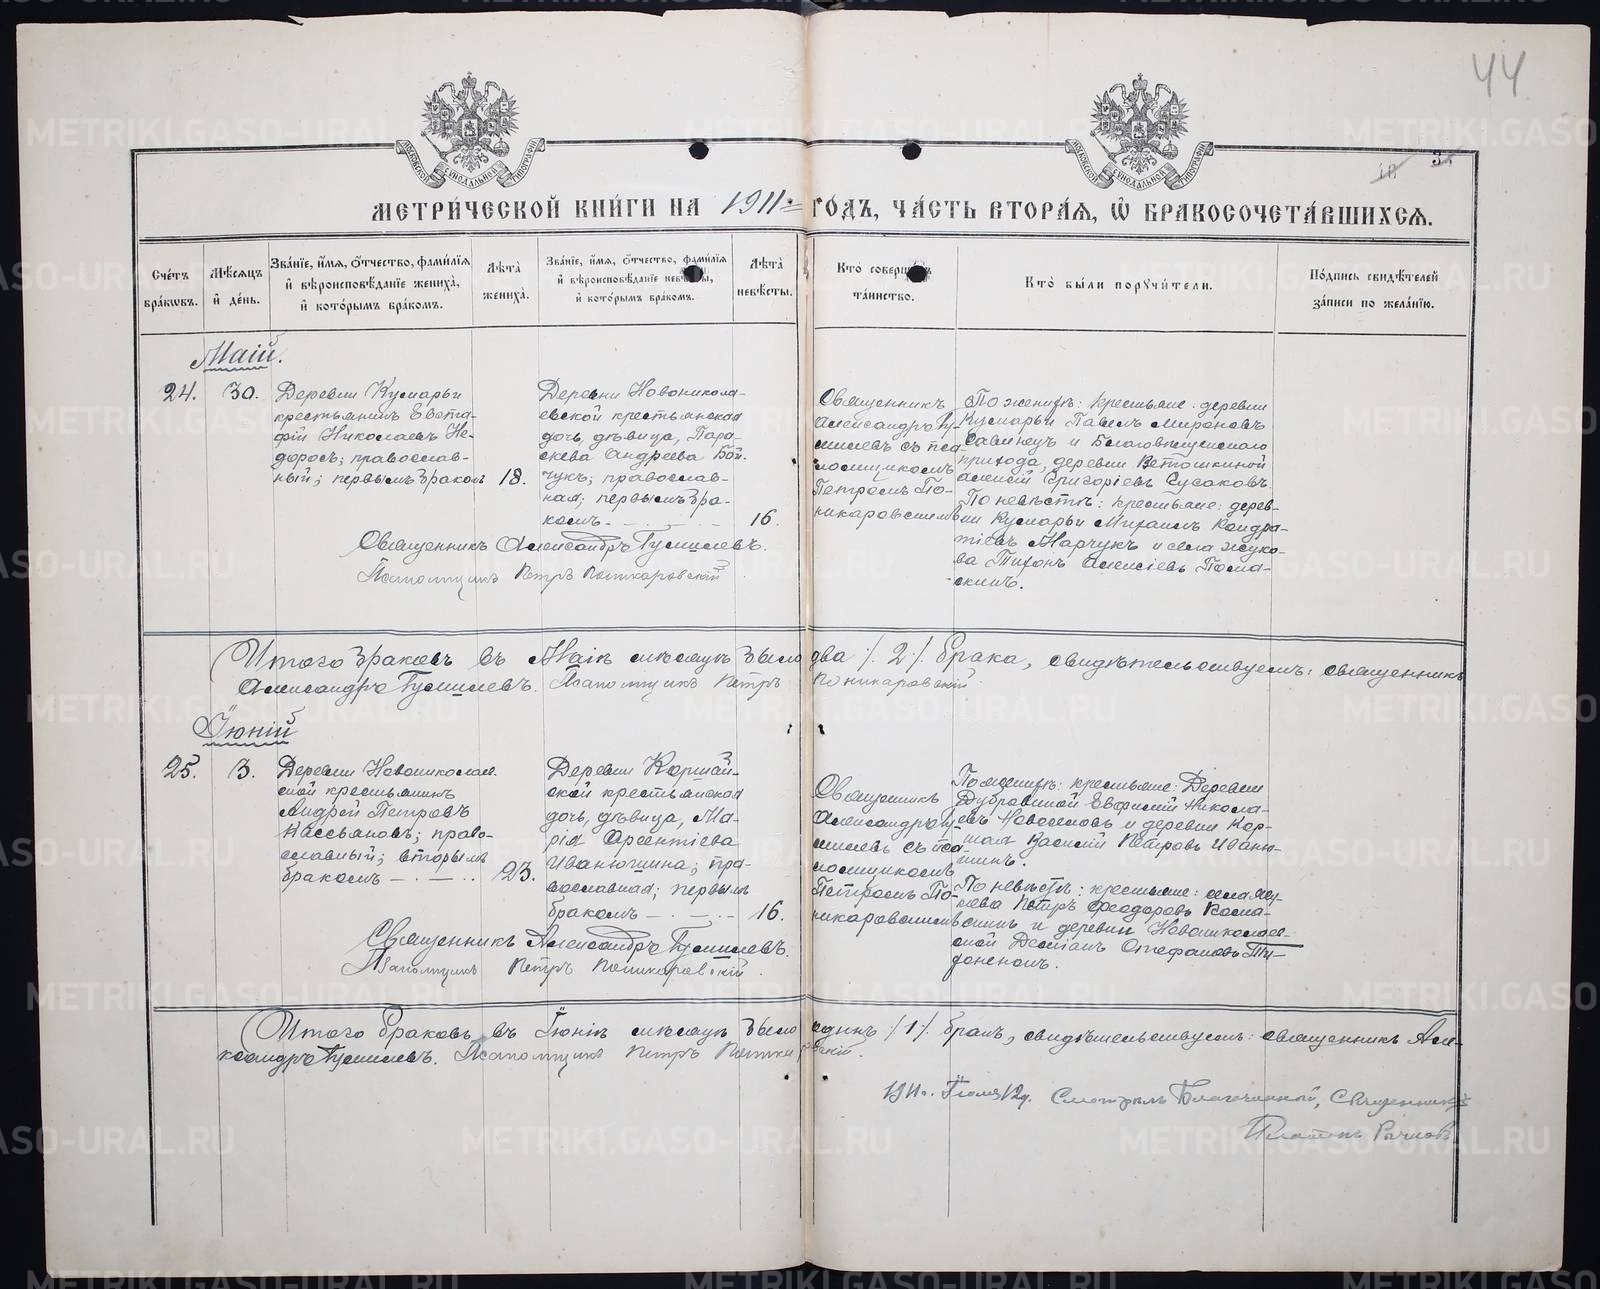 44
МОСКОВСКОЙ СѴНОДАЛЬНОЙ ТИПОГРАФІИ
МОСКОВСКОЙ СѴНОДАЛЬНОЙ ТИПОГРАФІИ
МЕТРИ́ЧЕСКОЙ КНИ́ГИ НА 1911 ГОДЪ, ЧА́СТЬ ВТОРА́Ѧ, Ѡ҆ БРАКОСОЧЕТА́ВШИХСѦ.
Сче́тъ бра́кѡвъ.
Мѣ́сѧцъ и҆ де́нь.
Зва́нїе, и҆́мѧ, ѻ҆́тчество, фами́лїѧ и҆ вѣроисповѣ́данїе жениха̀, и҆ кото́рымъ бра́комъ.
Лѣ́та жениха̀.
Зва́нїе, и҆́мѧ, ѻ҆́тчество, фами́лїѧ и҆ вѣроисповѣ́данїе невѣ́сты, и҆ кото́рымъ бра́комъ.
Лѣ́та невѣ́сты.
Кто̀ соверша́лъ та́инство.
Кто̀ бы́ли порꙋчи́тели.
По́дпись свидѣ́телей за́писи по жела́нїю.
Май.
24.
30.
Деревни Кумарьи
крестьянинъ Евста-
фій Николаевъ Не-
дорось; православ-
ный; первымъ бракомъ
18.
Деревни Новоникола-
евской крестьянская
дочь, дѣвица, Пара-
скева Андреева Бой-
чукъ; православ-
ная; первымъ бра-
комъ
16.
Священникъ
Александръ
съ пса-
ломщикомъ
Петромъ По-
никаровскимъ
По женихѣ: крестьяне: деревни
Кумарьи Павелъ Мироновъ
Савинецъ и Благовѣщенскаго
прихода, деревни Ветошкиной
Алексій Григоріевъ Русаковъ.
По невѣстѣ: крестьяне: дерев-
ни Кумарьи Михаилъ Кондра-
тіевъ Марчукъ и села Жуко-
ва Тихонъ Алексіевъ
Священникъ Александръ
Псаломщикъ Петръ Поникаровскій
Итого браковъ въ Маѣ мѣсяцѣ было два /.2/. брака, свидѣтельствуемъ: священникъ
Александръ Псаломщикъ Петръ Поникаровскій
Іюній
25.
3.
Деревни Новониколаев-
ской крестьянинъ
Андрей Петровъ
Кассьяновъ; право-
славный; вторымъ
бракомъ
23.
Деревни Коршай-
ской крестьянская
дочь, дѣвица, Ма-
рія Арсентіева
Иванюшина; пра-
вославная; первымъ
бракомъ
16.
Священникъ
Александръ
съ пса-
ломщикомъ
Петромъ По-
никаровскимъ
По женихѣ: крестьяне: Деревни
Дубровиной Евфимій Никола-
евъ Новоселовъ и деревни Кор-
шай Василій Петровъ Иваню-
шинъ.
По невѣстѣ: крестьяне: села Жу-
кова Петръ Феодоровъ
и деревни Новониколаев-
ской Даміанъ Стефановъ
Священникъ Александръ
Псаломщикъ Петръ Поникаровскій
Итого браковъ въ Іюнѣ мѣсяцѣ было одинъ /.1/. бракъ, свидѣтельствуемъ: священникъ Але-
ксандръ Псаломщикъ Петръ Поникаровскій.
1911 г. Іюля 12 д. Смотрѣлъ Благочинный, Священникъ
Платонъ
METRIKI.GASO-URAL.RU